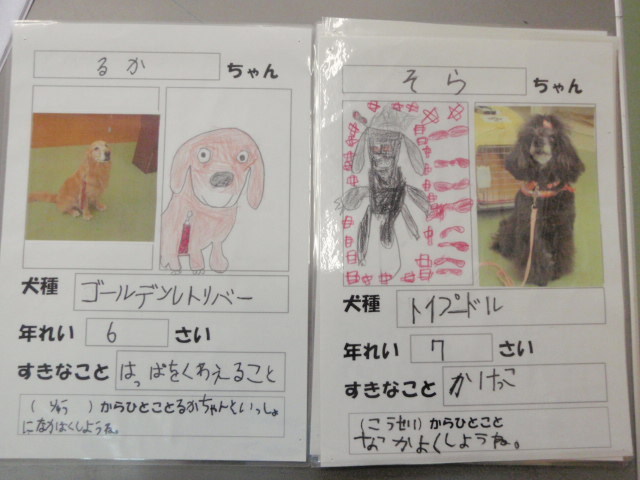 るか ちゃん
犬種 ゴールデンレトリバー
年れい 6 さい
すきなこと はっぱをくわえること
( りゅう )からひとことるかちゃんといっしょ
になかよくしようね。
そら ちゃん
犬種 トイプードル
年れい 7 さい
すきなこと かけっこ
(こうせい)からひとこと
なかよくしようね。